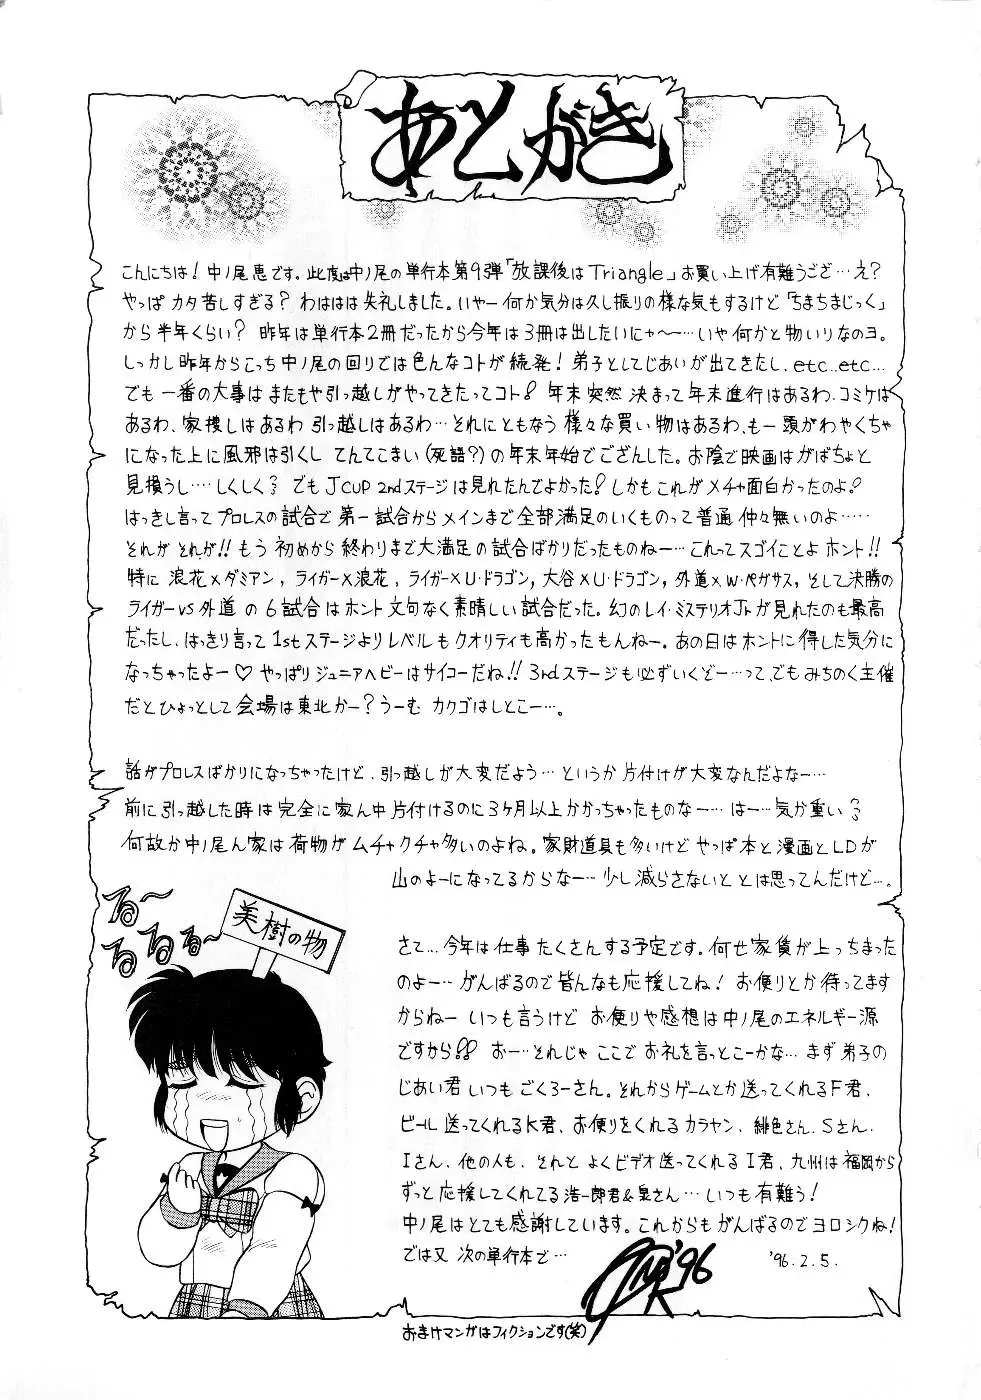 あとがき
こんにちは！中ノ尾恵です。此度は中ノ尾の単行本第9弾「放課後はTriangle」お買い上げ有難うござ…え？
やっぱ カタ苦しすぎる？ わははは失礼しました。いやー何か気分は久し振りの様な気もするけど「ちまちまじっく」
から半年くらい？ 昨年は単行本2冊だったから今年は3冊は出したいにゃ〜…いや何かと物いりなのヨ。
しっかし昨年からこっち中ノ尾の回りでは色んなコトが続発！弟子としてじあいが出てきたし、etc..etc…
でも一番の大事はまたもや引っ越しがやってきたってコト！ 年末突然 決まって年末進行はあるわ、コミケは
あるわ、家捜しはあるわ 引っ越しはあるわ…それにともなう 様々な買い物はあるわ、もー頭がわやくちゃ
になった上に風邪は引くし てんてこまい（死語？）の年末年始でござんした。お陰で映画はがばちょと
見損うし‥‥しくしく でもJ CUP 2ndステージは見れたんでよかった！しかもこれがメチャ面白かったのよ！
はっきし言ってプロレスの試合で第一試合からメインまで全部満足のいくものって普通 仲々無いのよ‥‥‥
それが それが!! もう 初めから終わりまで大満足の試合ばかりだったものねー…これってスゴイことよ ホント!!
特に 浪花×ダミアン, ライガー×浪花, ライガー×U・ドラゴン, 大谷×U・ドラゴン, 外道×W・ペガサス, そして決勝の
ライガー vs 外道 の 6試合はホント文句なく素晴しい試合だった。幻のレイ・ミステリオJrが見れたのも最高
だったし、はっきり言って 1stステージよりレベルもクオリティも高かったもんねー。あの日はホントに得した気分に
なっちゃったよー♡ やっぱりジュニアヘビーはサイコーだね!! 3rdステージも必ずいくぞー…って、でもみちのく主催
だとひょっとして会場は東北かー？うーむ カクゴはしとこー…。
話がプロレスばかりになっちゃったけど、引っ越しが大変だよう…というか 片付けが大変なんだよなー…
前に引っ越した時は完全に家ん中片付けるのに3ヶ月以上かかっちゃったものなー…はー…気が重い
何故か中ノ尾ん家は荷物がムチャクチャ多いのよね。家財道具も多いけど やっぱ本と漫画とLDが
山のよーになってるからなー…少し減らさないと とは思ってんだけど…。
る〜
るるる〜
美樹の物
さて…今年は仕事たくさんする予定です。何せ家賃が上っちまった
のよー…がんばるので皆んなも応援してね！ お便りとか待ってます
からねー いつも言うけど お便りや感想は中ノ尾のエネルギー源
ですから!! おー…それじゃ ここで お礼を言っとこーかな…まず弟子の
じあい君いつもごくろーさん。それからゲームとか送ってくれるF君、
ビール送ってくれるK君、お便りをくれるカラヤン、緋色さん、Sさん、
Iさん、他の人も、それと よくビデオ送ってくれるI君、九州は福岡から
ずっと応援してくれてる浩一郎君&泉さん…いつも有難う！
中ノ尾はとても感謝しています。これからもがんばるのでヨロシクね！
では又 次の単行本で…
'96
'96.2.5.
おまけマンガはフィクションです(笑)